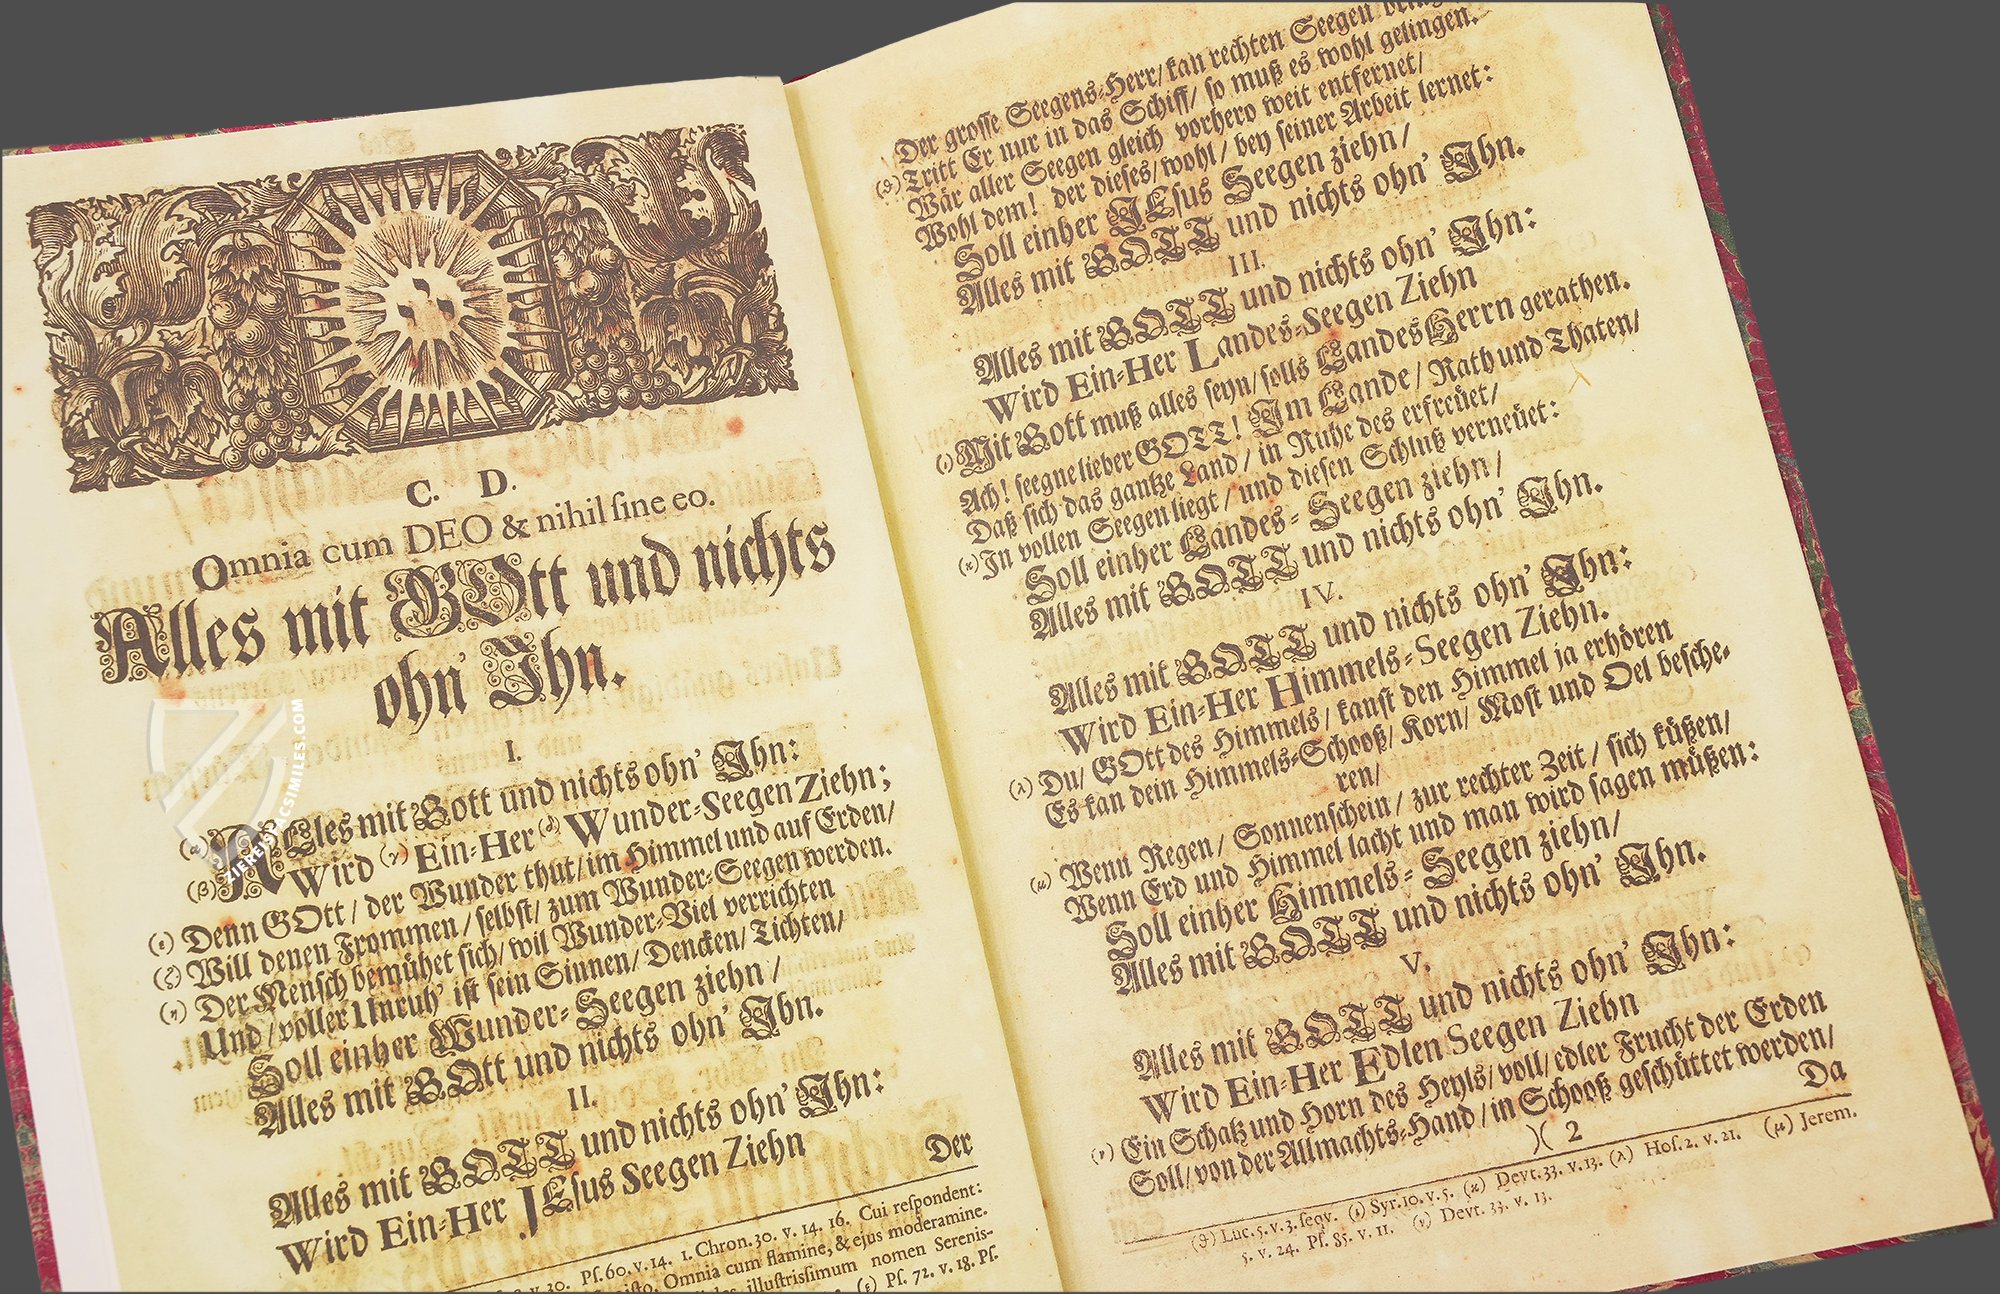 C. D.
Omnia cum DEO & nihil ſine eo.
Alles mit GOtt und nichts
ohn' Ihn.
I.
(α) ALles mit Gott und nichts ohn' Ihn:
(β) Wird (γ) Ein-Her (δ) Wunder-Seegen Ziehn;
(ε) Denn GOtt / der Wunder thut / im Himmel und auf Erden /
(ζ) Will denen Frommen / ſelbſt / zum Wunder-Seegen werden.
(η) Der Menſch bemühet ſich / wil Wunder-Viel verrichten
Und / voller Unruh' iſt ſein Sinnen / Dencken / Tichten /
Soll einher Wunder-Seegen ziehn /
Alles mit GOtt und nichts ohn' Ihn.
II.
Alles mit GOTT und nichts ohn' Ihn:
Wird Ein-Her JEſus Seegen Ziehn
Der
v. 30. Pſ. 60. v. 14. 1. Chron. 30. v. 14. 16. Cui reſpondent:
Omnia cum flamine, & ejus moderamine.
illuſtriſſimum nomen Sereniſ-
(ε) Pſ. 72. v. 18. Pſ.
Der groſſe Seegens-Herr / kan rechten Seegen
(θ) Tritt Er nur in das Schiff / ſo muß es wohl gelingen.
Wär aller Seegen gleich vorhero weit entfernet /
Wohl dem! der dieſes / wohl / bey ſeiner Arbeit lernet:
Soll einher JEſus Seegen ziehn /
Alles mit GOTT und nichts ohn' Ihn.
III.
Alles mit GOTT und nichts ohn' Ihn:
Wird Ein-Her Landes-Seegen Ziehn
(ι) Mit Gott muß alles ſeyn / ſolls LandesHerrn gerathen.
Ach! ſeegne lieber GOTT! Im Lande / Rath und Thaten /
Daß ſich das gantze Land / in Ruhe des erfreüet /
(κ) In vollen Seegen liegt / und dieſen Schluß verneüet:
Soll einher Landes-Seegen ziehn /
Alles mit GOTT und nichts ohn' Ihn.
IV.
Alles mit GOTT und nichts ohn' Ihn:
Wird Ein-Her Himmels-Seegen Ziehn.
(λ) Du / GOtt des Himmels / kanſt den Himmel ja erhören
Es kan dein Himmels-Schooß / Korn / Moſt und Oel beſche-
ren /
(μ) Wenn Regen / Sonnenſchein / zur rechter Zeit / ſich küßen /
Wenn Erd und Himmel lacht und man wird ſagen müßen:
Soll einher Himmels-Seegen ziehn /
Alles mit GOTT und nichts ohn' Ihn.
V.
Alles mit GOTT und nichts ohn' Ihn:
Wird Ein-Her Edlen Seegen Ziehn
(ν) Ein Schatz und Horn des Heyls / voll / edler Frucht der Erden
Soll / von der Allmachts-Hand / in Schooß geſchüttet werden /
Da
)( 2
(θ) Luc. 5. v. 3. ſeqv. (ι) Syr. 10. v. 5. (κ) Devt. 33. v. 13. (λ) Hoſ. 2. v. 21. (μ) Jerem.
5. v. 24. Pſ. 85. v. 11. (ν) Devt. 33. v. 13.
ZIEREIS FACSIMILES.COM